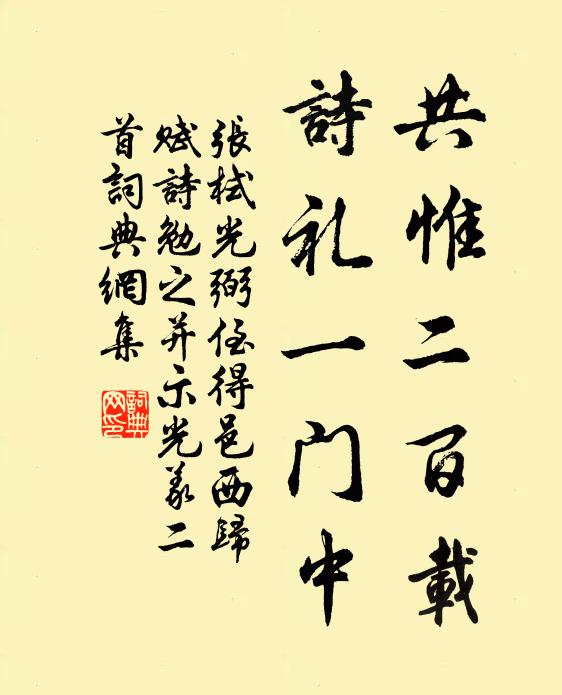 共惟二百載
詩礼一门中
張栻光弼侄得邑西歸
赋詩勉之并示光義二
首詞典網集
詞典网印